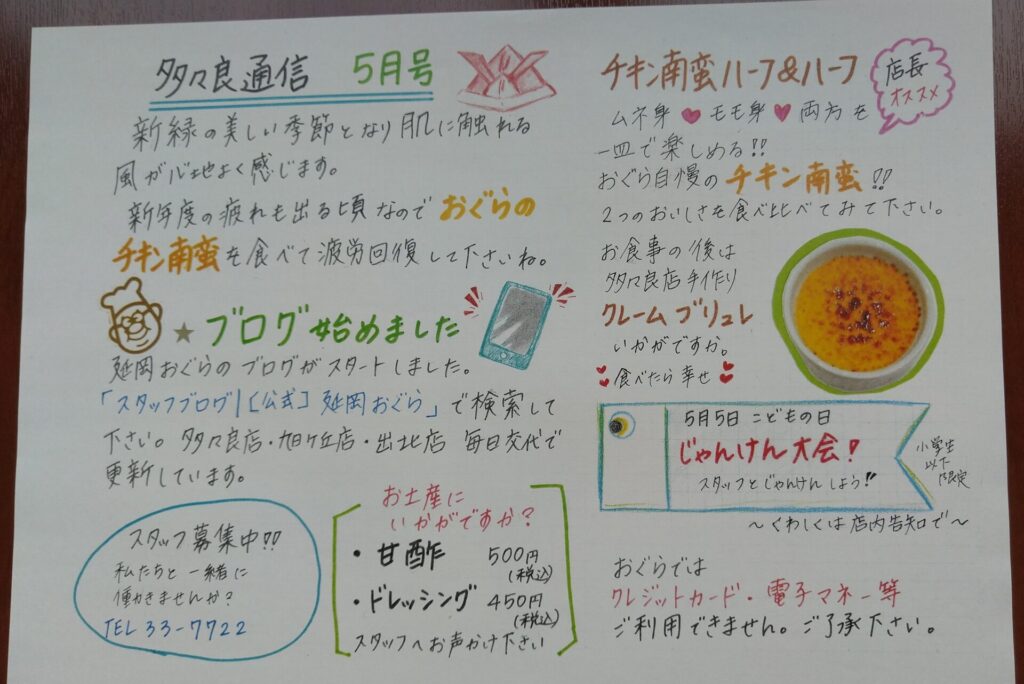 多々良通信 5月号
新緑の美しい季節となり肌に触れる
風が心地よく感じます。
新年度の疲れも出る頃なので おぐらの
チキン南蛮を食べて疲労回復して下さいね。
★ブログ始めました
延岡おぐらのブログがスタートしました。
「スタッフブログ|[公式]延岡おぐら」で検索して
下さい。多々良店・旭ヶ丘店・出北店 毎日交代で
更新しています。
スタッフ募集中!!
私たちと一緒に
働きませんか?
TEL 33-7722
お土産に
いかがですか?
・甘酢 500円
(税込)
・ドレッシング 450円
(税込)
スタッフへお声かけ下さい
チキン南蛮ハーフ&ハーフ
店長
オススメ
ムネ身♥モモ身♥両方を
一皿で楽しめる!!
おぐら自慢のチキン南蛮!!
2つのおいしさを食べ比べてみて下さい。
お食事の後は
多々良店手作り
クレームブリュレ
いかがですか。
♥食べたら幸せ♥
5月5日 こどもの日
じゃんけん大会!
スタッフとじゃんけんしよう!!
小学生
以下
限定
〜くわしくは店内告知で〜
おぐらでは
クレジットカード・電子マネー等
ご利用できません。ご了承下さい。